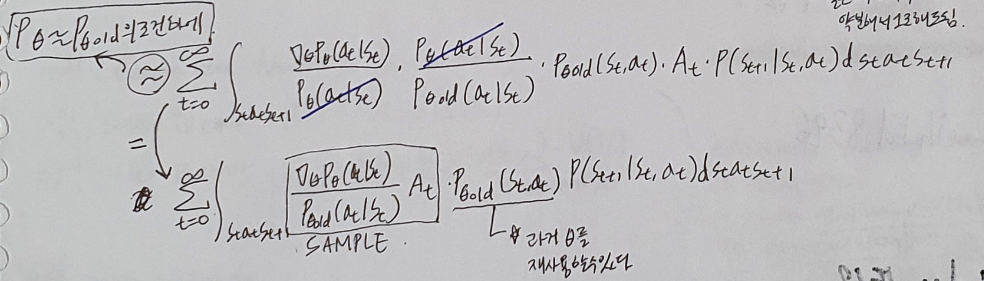 약분해서 1로 해도됨.
P_θ≈P_θold의 조건하에
≈ ∑_{t=0}^{∞} ∫_{s_t a_t s_{t+1}} ∇_θP_θ(a_t|s_t)/P_θ(a_t|s_t) · P_θ(a_t|s_t)/P_θold(a_t|s_t) · P_θold(s_t,a_t) · A_t · P(s_{t+1}|s_t,a_t) d s_t a_t s_{t+1}
=
∑_{t=0}^{∞} ∫_{s_t a_t s_{t+1}} ∇_θP_θ(a_t|s_t)/P_θold(a_t|s_t) A_t · P_θold(s_t,a_t) P(s_{t+1}|s_t,a_t) d s_t a_t s_{t+1}
SAMPLE
과거 θ를
재사용할수있다